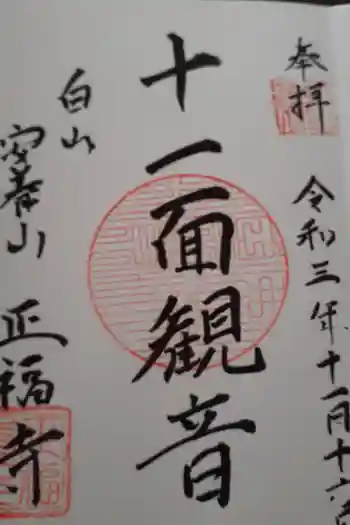 奉拝
令和三年十一月十六日
十一面観音
白山
安養山
正福寺